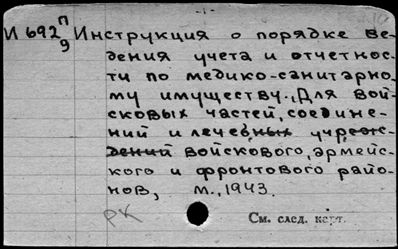 И 692 п/9 Инструкция о порядке ве-
дения учета и отчетнос-
ти по медико-санитарно-
му имуществу. Для вой-
сковых частей, соедине-
ний и лечебных учреж-
дений войскового, армейс-
кого и фронтового райо-
нов, М., 1943.
РК
См. след. карт.